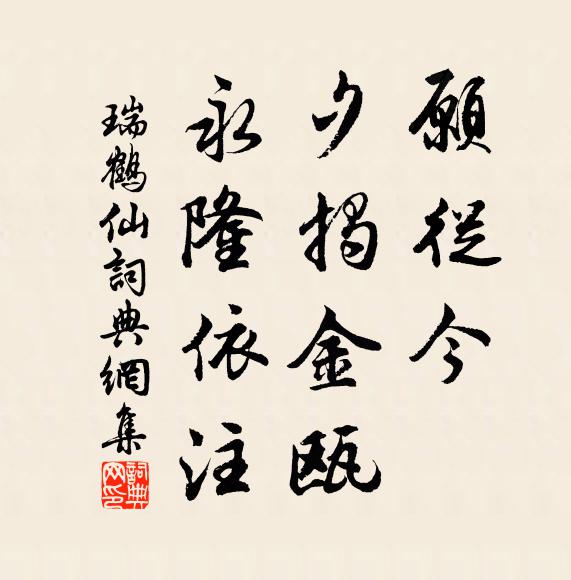 願從今
夕揭金甌
永隆依注
瑞鶴仙詞典網集
詞典網印